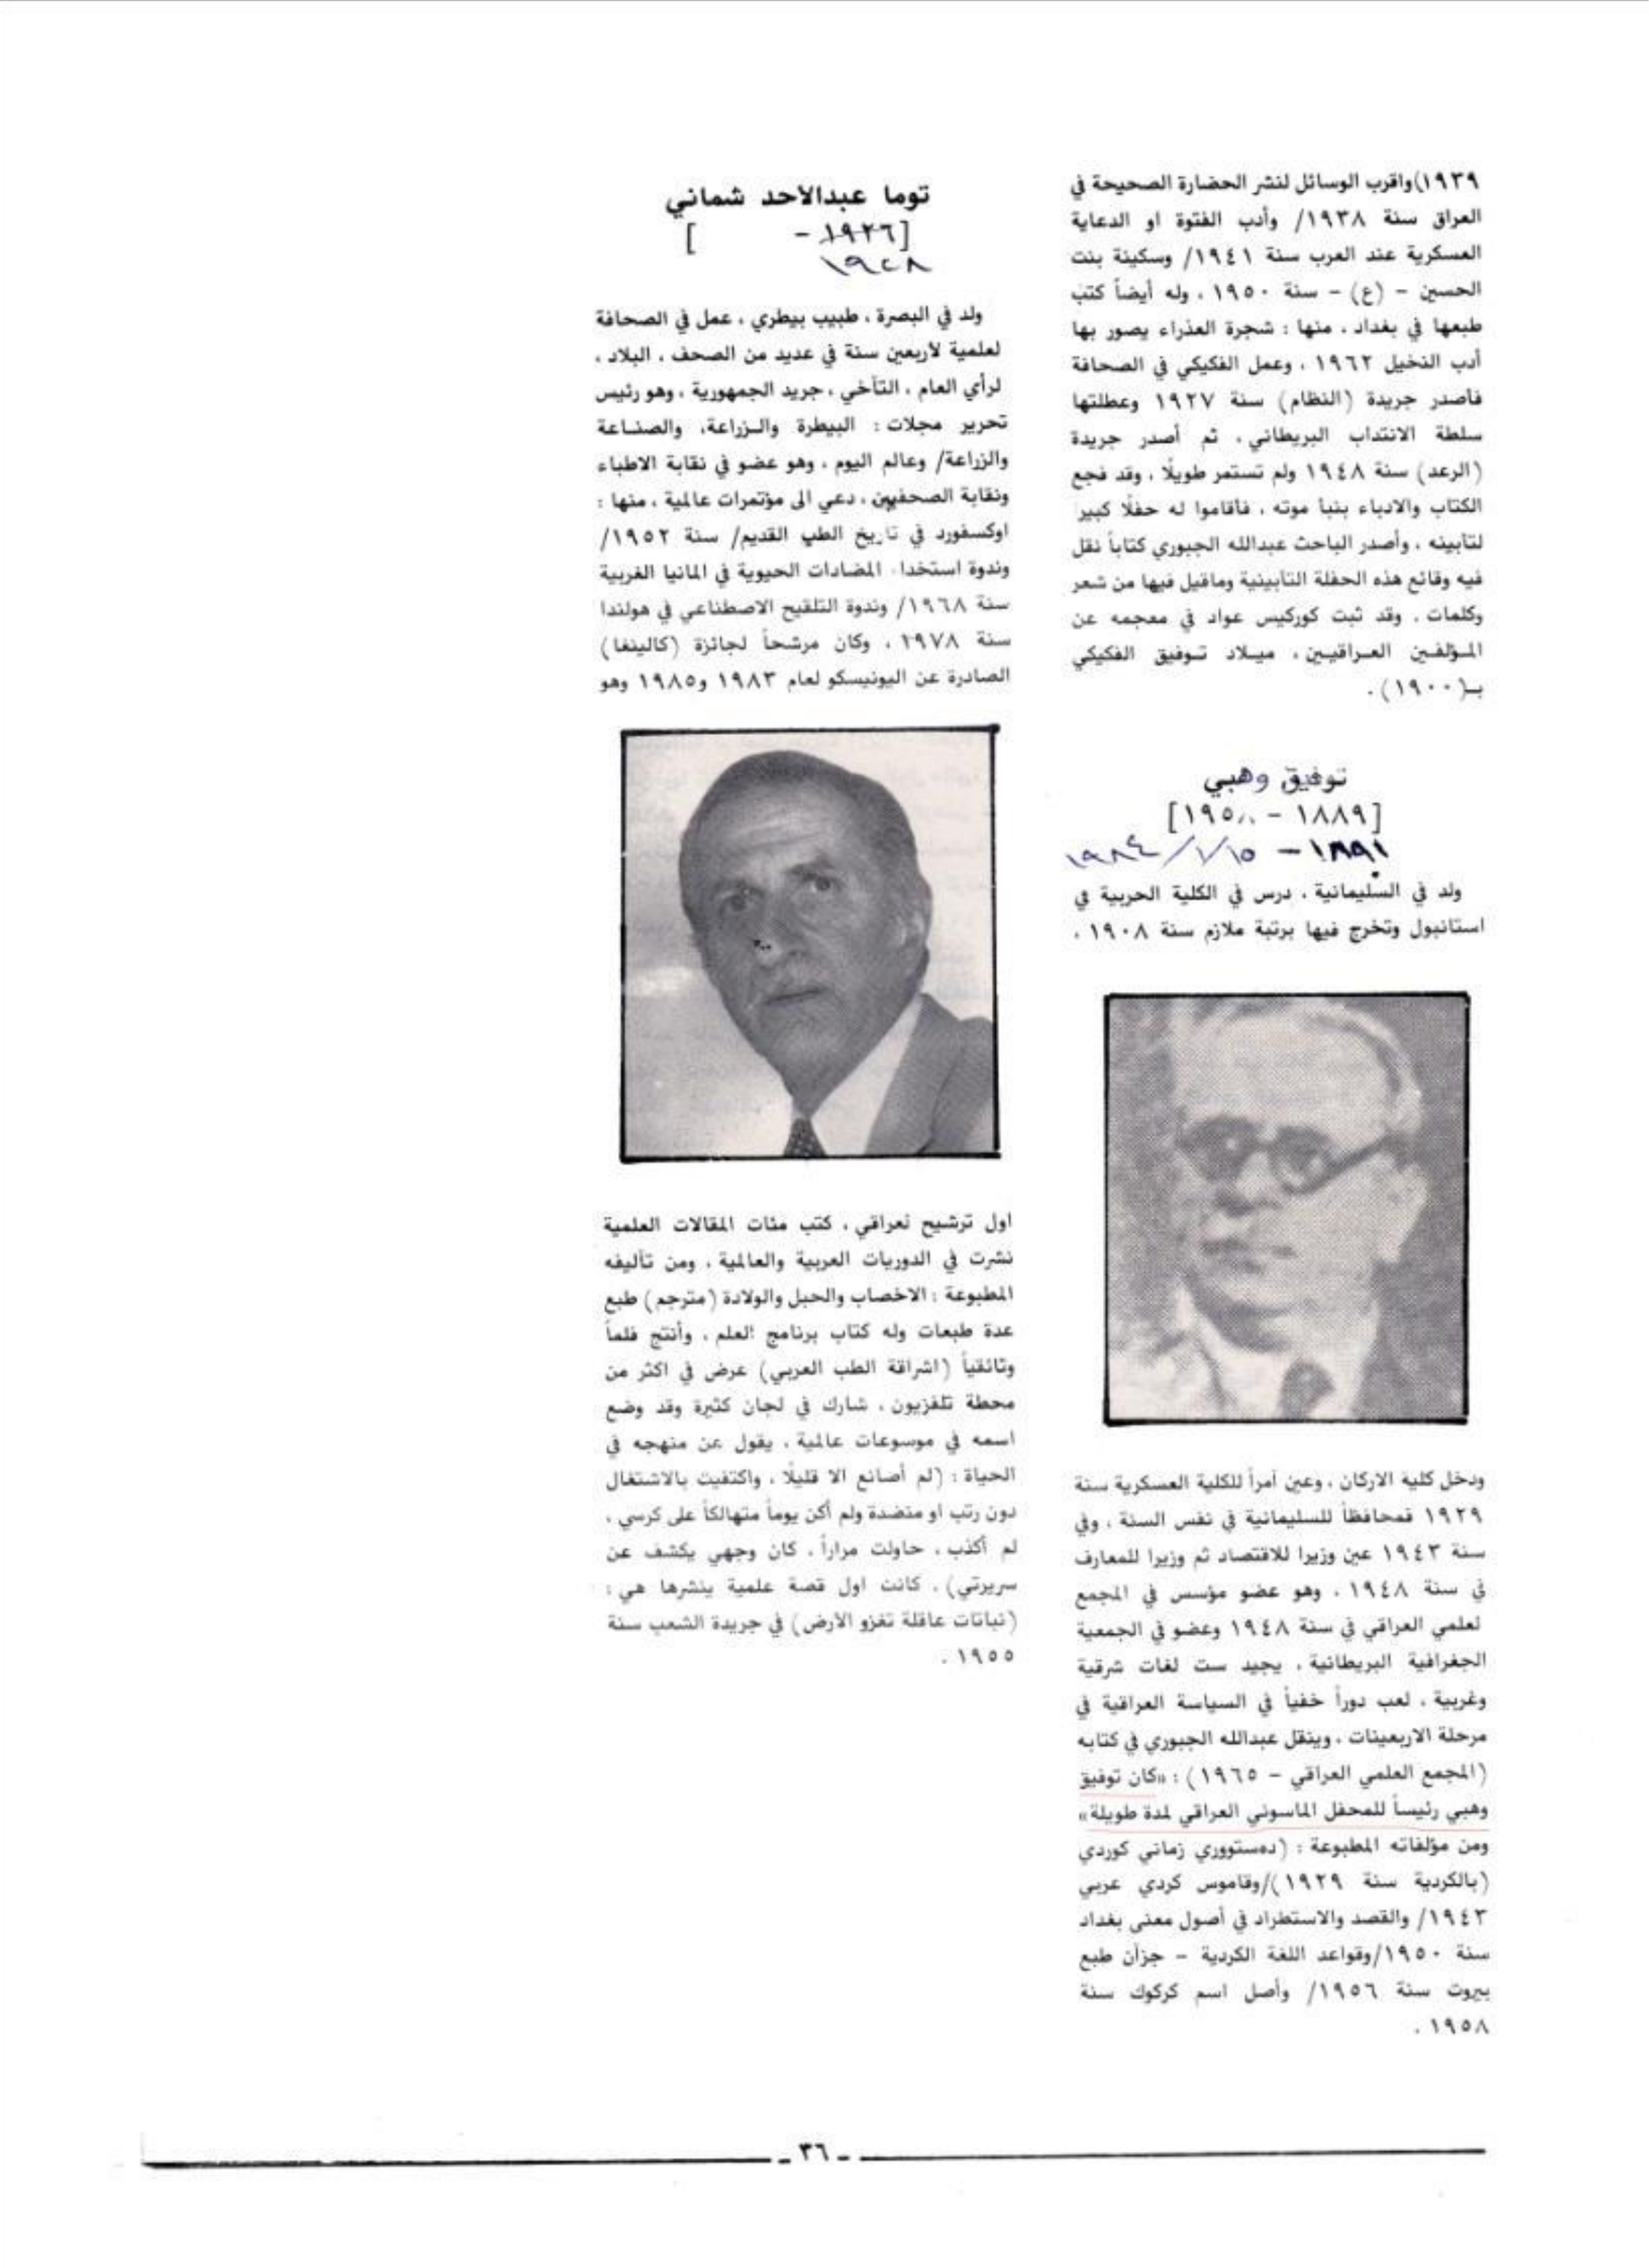 ١٩٣٩)واقرب الوسائل لنشر الحضارة الصحيحة في
العراق سنة ١٩٣٨/ وأدب الفتوة او الدعاية
العسكرية عند العرب سنة ١٩٤١/ وسكينة بنت
الحسين - (ع) - سنة ١٩٥٠ ، وله أيضاً كتب
طبعها في بغداد ، منها : شجرة العذراء يصور بها
أدب النخيل ١٩٦٢ ، وعمل الفكيكي في الصحافة
فأصدر جريدة (النظام) سنة ١٩٢٧ وعطلتها
سلطة الانتداب البريطاني ، ثم أصدر جريدة
(الرعد) سنة ١٩٤٨ ولم تستمر طويلًا ، وقد فجع
الكتاب والادباء بنبأ موته ، فأقاموا له حفلًا كبير
لتأبينه ، وأصدر الباحث عبدالله الجبوري كتاباً نقل
فيه وقائع هذه الحفلة التأبينية وماقيل فيها من شعر
وكلمات ، وقد ثبت كوركيس عواد في معجمه عن
المؤلفين العراقيين ، ميلاد توفيق الفكيكي
بـ(١٩٠٠) .
توفيق وهبي
[١٨٨٩ - ١٩٥٠]
١٨٩١ - ١٩٨٤/١/١٥
ولد في السليمانية ، درس في الكلية الحربية في
استانبول وتخرج فيها برتبة ملازم سنة ١٩٠٨ ،
ودخل كلية الاركان ، وعين آمراً للكلية العسكرية سنة
١٩٢٩ فمحافظاً للسليمانية في نفس السنة ، وفي
سنة ١٩٤٣ عين وزيرا للاقتصاد ثم وزيرا للمعارف
في سنة ١٩٤٨ ، وهو عضو مؤسس في المجمع
لعلمي العراقي في سنة ١٩٤٨ وعضو في الجمعية
الجغرافية البريطانية ، يجيد ست لغات شرقية
وغربية ، لعب دوراً خفياً في السياسة العراقية في
مرحلة الاربعينات ، وينقل عبدالله الجبوري في كتابه
(المجمع العلمي العراقي - ١٩٦٥) : «كان توفيق
وهبي رئيساً للمحفل الماسوني العراقي لمدة طويلة»
ومن مؤلفاته المطبوعة : (دهستووري زماني كوردي
(بالكردية سنة ١٩٢٩)/وقاموس كردي عربي
١٩٤٣/ والقصد والاستطراد في أصول معنى بغداد
سنة ١٩٥٠/وقواعد اللغة الكردية - جزآن طبع
بيروت سنة ١٩٥٦/ وأصل اسم كركوك سنة
١٩٥٨ .
توما عبدالاحد شماني
[١٩٢٦ - ]
١٩٢٨
ولد في البصرة ، طبيب بيطري ، عمل في الصحافة
لعلمية لاربعين سنة في عديد من الصحف ، البلاد ،
لرأي العام ، التآخي ، جريد الجمهورية ، وهو رئيس
تحرير مجلات : البيطرة والزراعة، والصناعة
والزراعة/ وعالم اليوم ، وهو عضو في نقابة الاطباء
ونقابة الصحفيين ، دعي الى مؤتمرات عالمية ، منها :
اوكسفورد في تاريخ الطب القديم/ سنة ١٩٥٢/
وندوة استخدا، المضادات الحيوية في المانيا الغربية
سنة ١٩٦٨/ وندوة التلقيح الاصطناعي في هولندا
سنة ١٩٧٨ ، وكان مرشحاً لجائزة (كالينغا)
الصادرة عن اليونيسكو لعام ١٩٨٣ و١٩٨٥ وهو
اول ترشيح لعراقي ، كتب مئات المقالات العلمية
نشرت في الدوريات العربية والعالمية ، ومن تأليفه
المطبوعة : الاخصاب والحبل والولادة (مترجم) طبع
عدة طبعات وله كتاب برنامج العلم ، وأنتج فلماً
وثائقياً (اشراقة الطب العربي) عرض في اكثر من
محطة تلفزيون ، شارك في لجان كثيرة وقد وضع
اسمه في موسوعات عالمية ، يقول عن منهجه في
الحياة : (لم أصانع الا قليلًا ، واكتفيت بالاشتغال
دون رتب او منضدة ولم أكن يوماً متهالكاً على كرسي ،
لم أكذب ، حاولت مراراً ، كان وجهي يكشف عن
سريرتي) ، كانت اول قصة علمية ينشرها هي :
(نباتات عاقلة تغزو الأرض) في جريدة الشعب سنة
١٩٥٥ .
- ٣٦ -